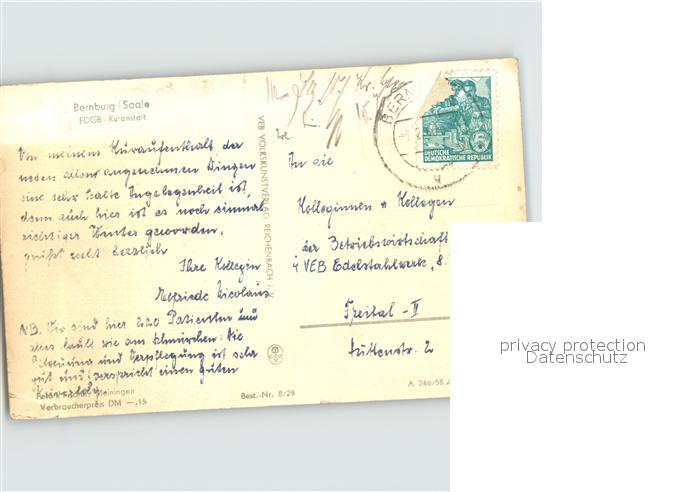 Bernburg / Saale
FDGB - Kuranstalt
Von meinem Kuraufenthalt der
neben allen angenehmen Dingen
eine sehr kalte Angelegenheit ist,
denn auch hier ist es noch einmal
richtiger Winter geworden,
grüßt recht herzlich
Ihre Kollegin
Elfriede Nicolaus
NB. Wir sind hier 220 Patienten und
alles läuft wie am Schnürchen. Die
Betreuung und Verpflegung ist sehr
gut und verspricht einen guten
Kurerfolg.
Meiningen
Verbraucherpreis DM —,15
VEB VOLKSKUNSTVERLAG REICHENBACH i. V.
Best.-Nr. 8/29
A 246/58
BERN
DEUTSCHE
DEMOKRATISCHE REPUBLIK
5
An die
Kolleginnen u Kollegen
der Betriebswirtschaft
VEB Edelstahlwerk, 8.
Freital - II
Hüttenstr. 2
privacy protection
Datenschutz